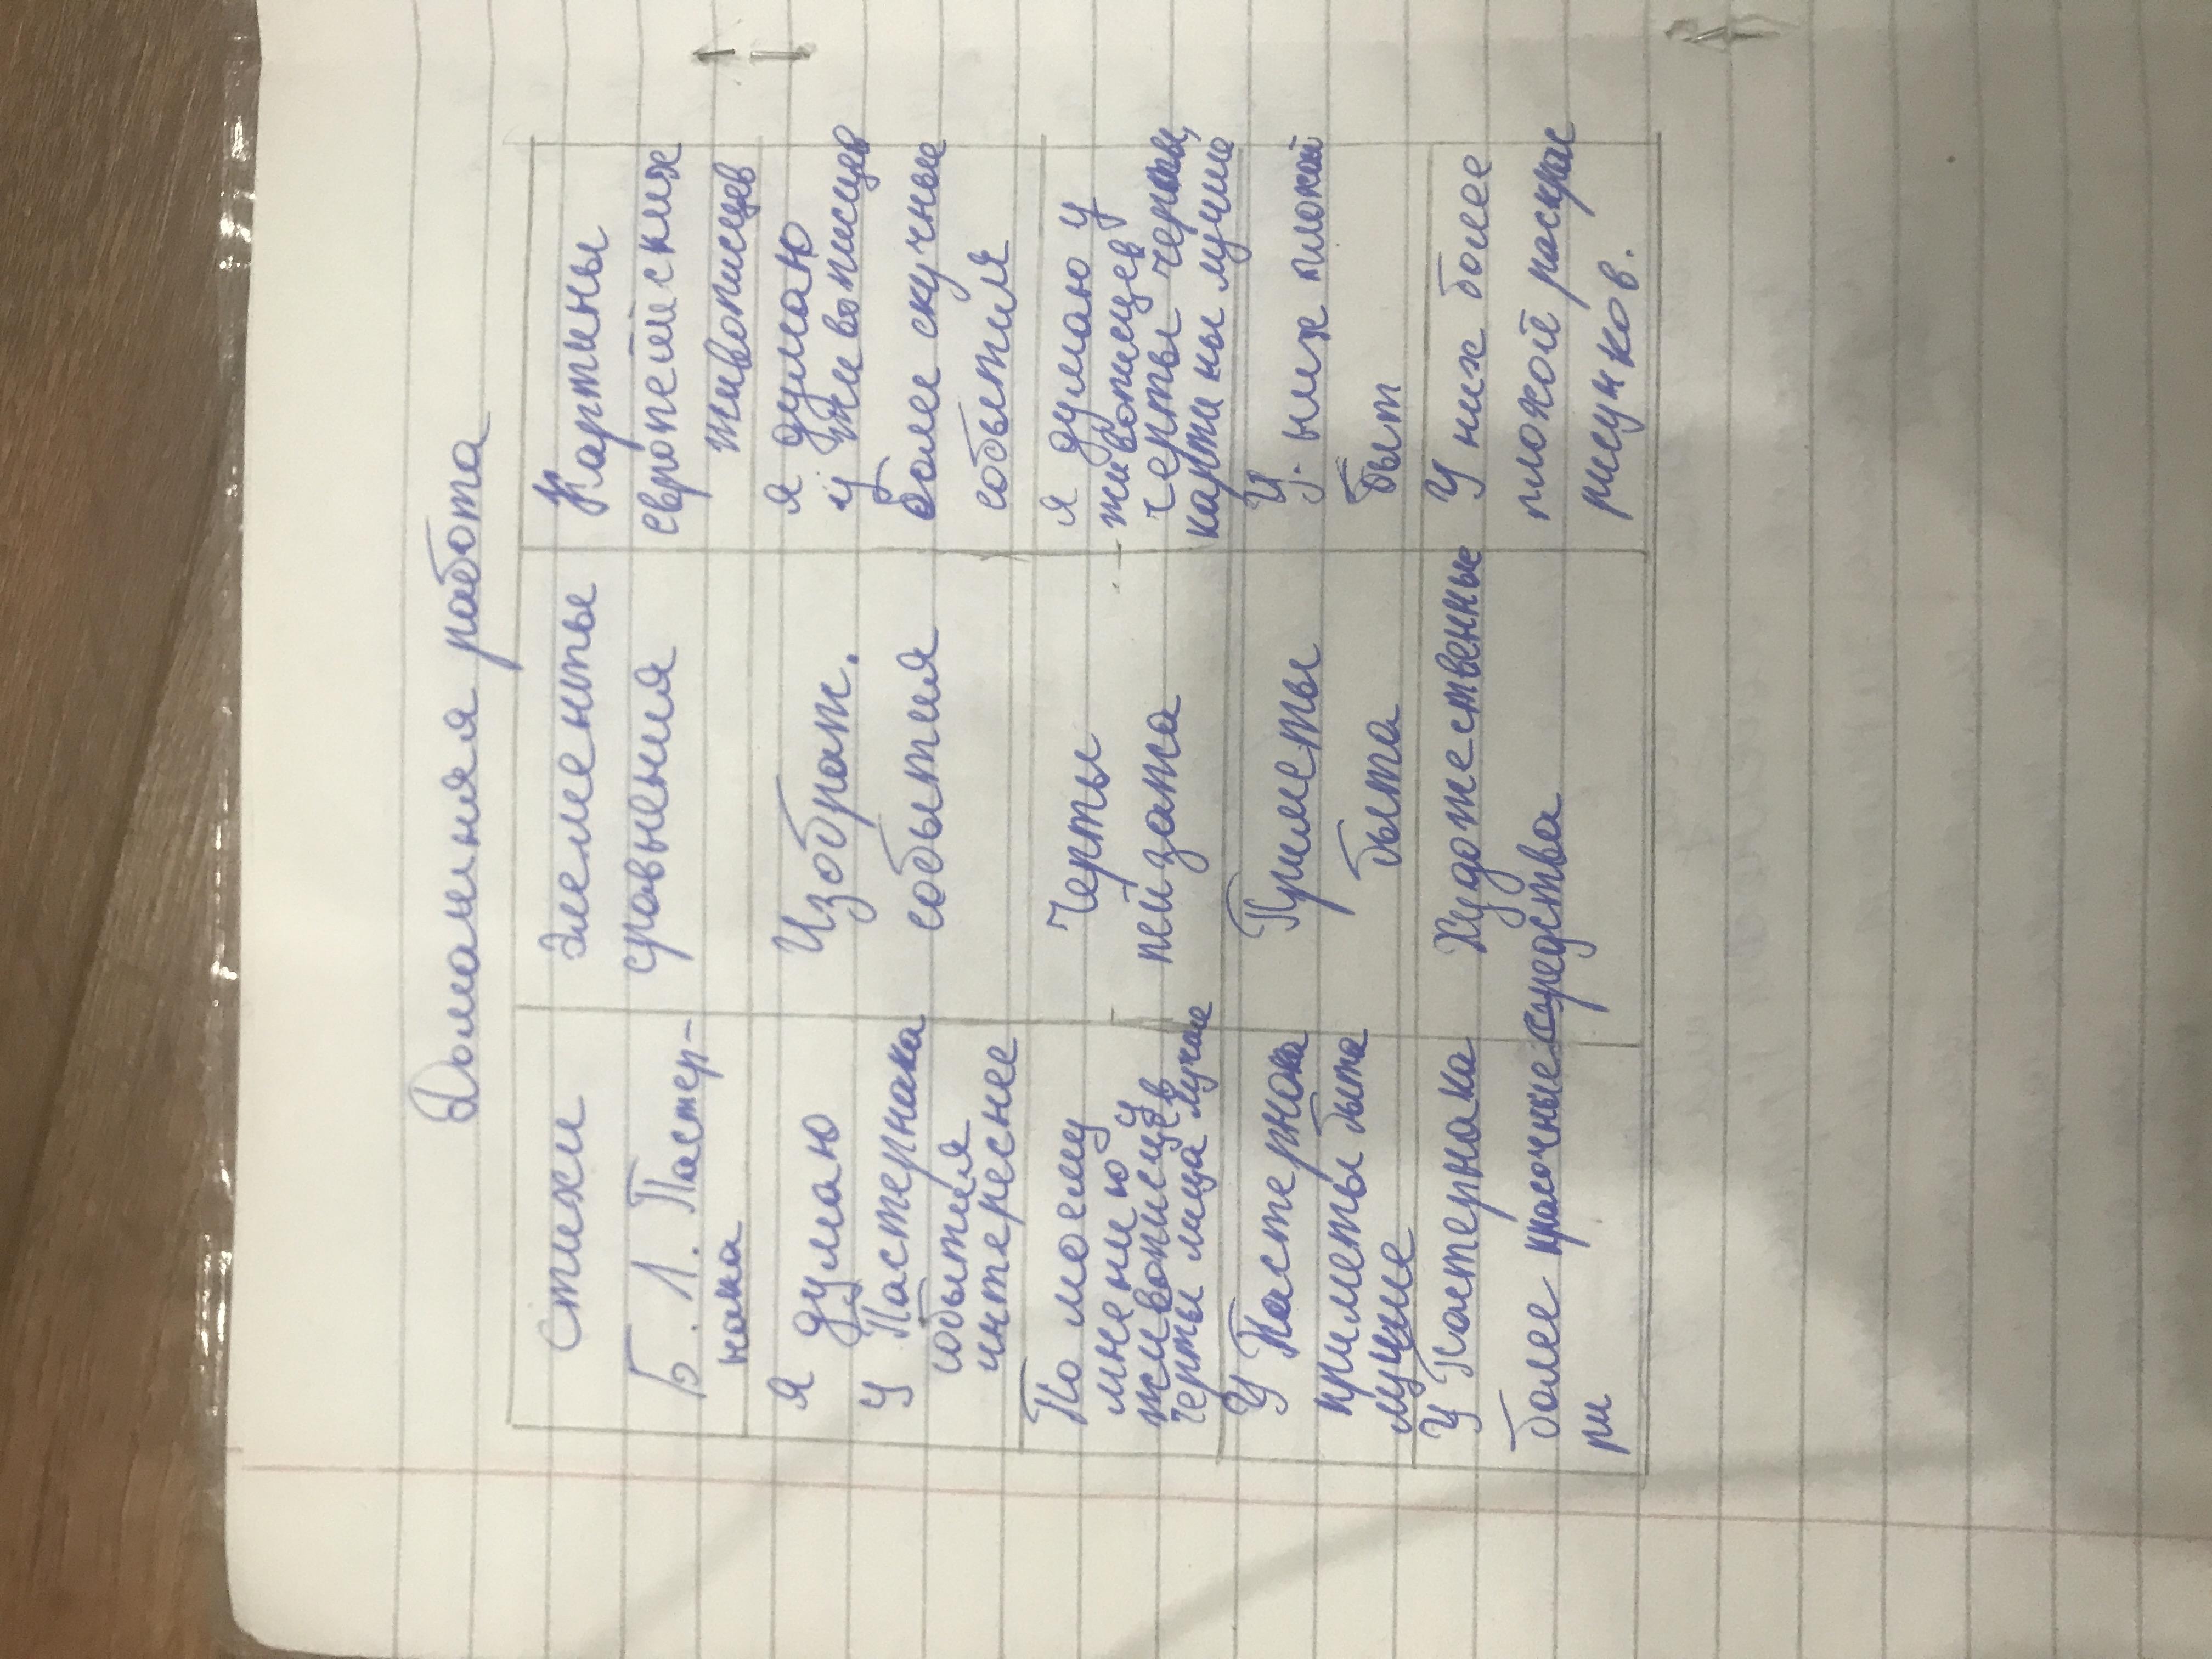 Домашняя работа
Стихи
Б. Л. Пастер-
нака
Элементы
сравнения
Картины
европейских
живописцев
Я думаю
у Пастернака
события
интереснее
Изображ.
события
я думаю
у живописцев
более скучные
события
По моему
мнению у
живописцев
черты лица лучше
Черты
пейзажа
я думаю у
живописцев
черты
картины лучше
У Пастернака
приметы быта
лучше
Приметы
быта
У них плохой
быт
У Пастернака
более
Художественные
средства
У них более
плохой
рисунков.